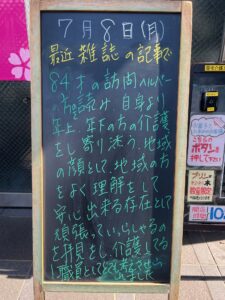 7月8日(月)
最近雑誌の記事で
84才の訪問ヘルパー
自身より
年上、年下の方の介護
をし寄り添う、地域
の顔として、地域の方
をよく理解をして
安心出来る存在として
頑張っていらっしゃるの
を拝見をし、介護してる
職員として
こちらの
ボタンを
押して下さい
プリン